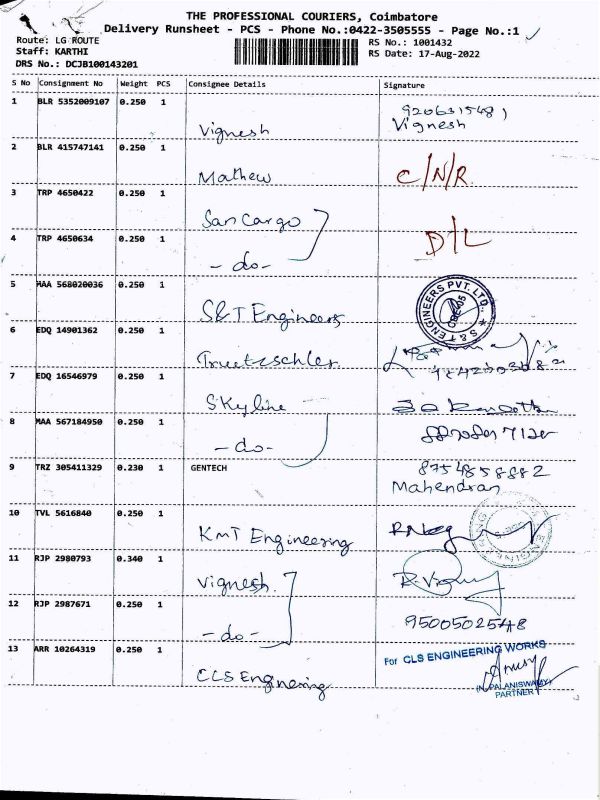 THE PROFESSIONAL COURIERS, Coimbatore
Delivery Runsheet - PCS - Phone No.:0422-3505555 - Page No.:1
Route: LG ROUTE
RS No.: 1001432
Staff: KARTHI
RS Date: 17-Aug-2022
DRS No.: DCJB100143201
S No Consignment No Weight PCS Consignee Details Signature
1 BLR 5352009107 0.250 1
Vignesh
Vignesh
2 BLR 415747141 0.250 1
Mathew C/N/R
3 TRP 4650422 0.250 1
San Cargo
4 TRP 4650634 0.250 1 D/L
- do -
5 MAA 568020036 0.250 1
S&T Engineers
S & T ENGINEERS PVT. LTD.
6 EDQ 14901362 0.250 1
Truetzschler
7 EDQ 16546979 0.250 1
Skyline
8 MAA 567184950 0.250 1
- do -
9 TRZ 305411329 0.230 1 GENTECH 8754858882
Mahendran
10 TVL 5616840 0.250 1
KMT Engineering
11 RJP 2980793 0.340 1
Vignesh
12 RJP 2987671 0.250 1 9500502548
- do -
13 ARR 10264319 0.250 1
For CLS ENGINEERING WORKS
CLS Enginering
PARTNER